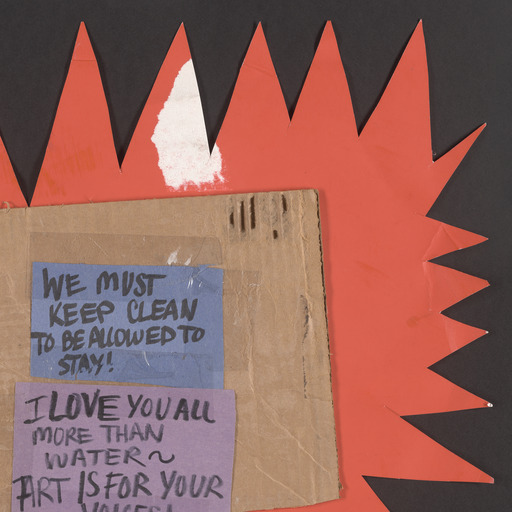 WE MUST
KEEP CLEAN
TO BE ALLOWED TO
STAY!
I LOVE YOU ALL
MORE THAN
WATER ~
ART IS FOR YOUR